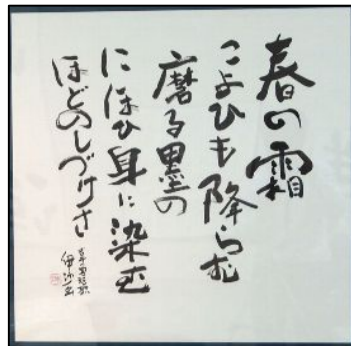 春の霜
こよひも降らむ
磨る墨の
にほひ身に染む
ほどのしづけさ